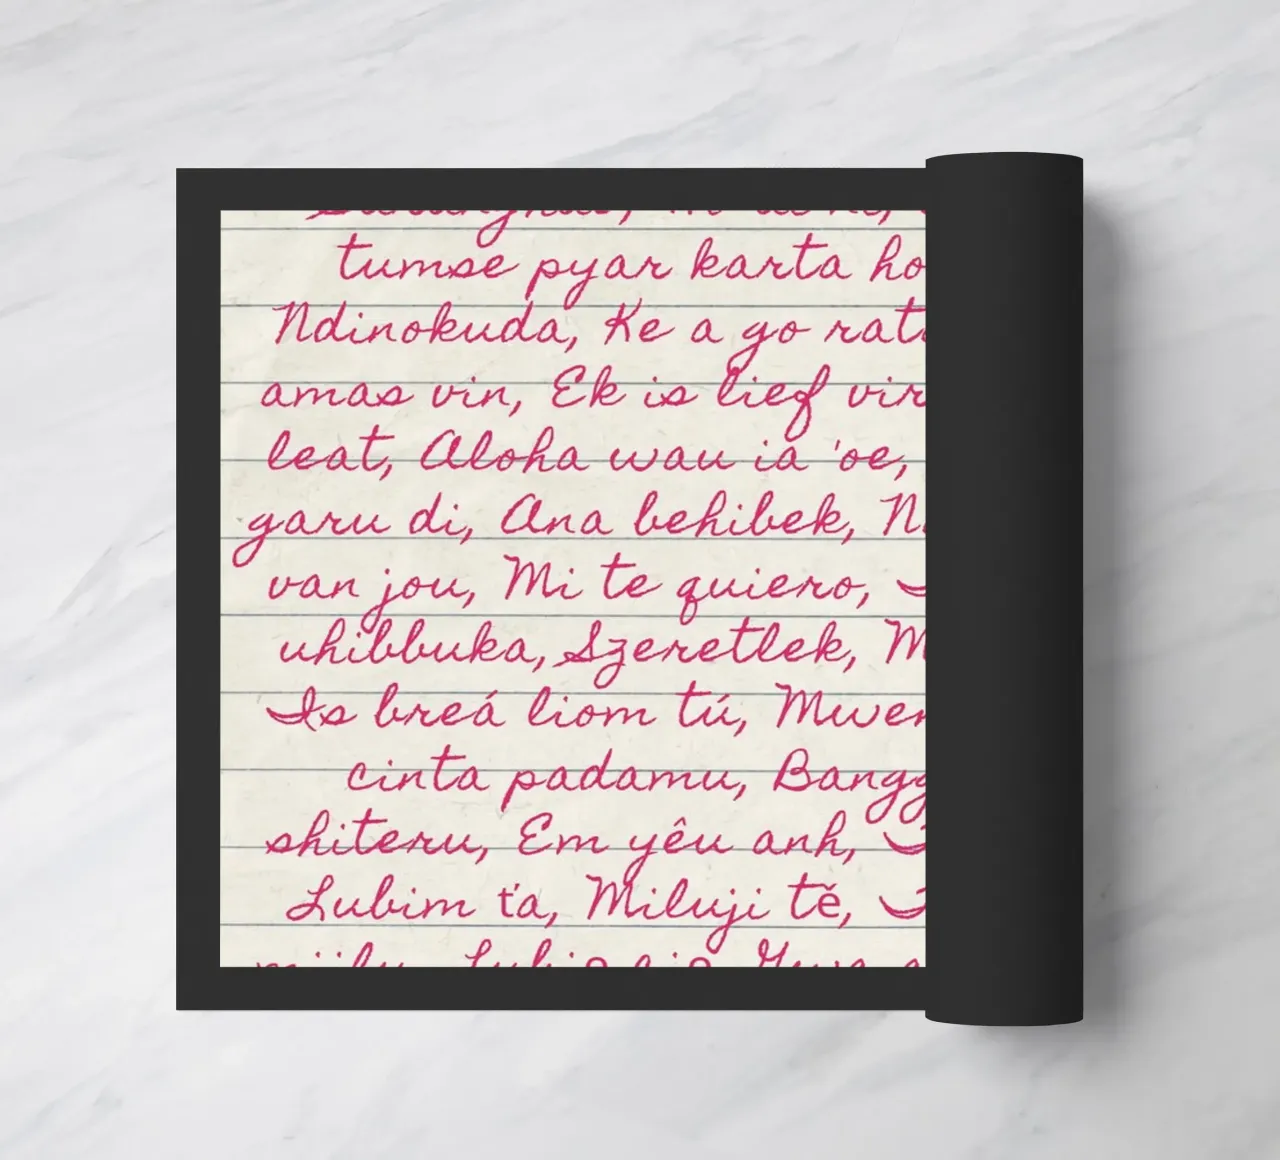 tumse pyar karta ho
Ndinokuda, Ke a go rat
amas vin, Ek is lief vir
leat, Aloha wau ia 'oe,
garu di, Ana behibek,
van jou, Mi te quiero,
uhibbuka, Szeretlek, M
Is breá liom tú, Mwen
cinta padamu, Bangg
shiteru, Em yêu anh,
Lubim ťa, Miluji tě,